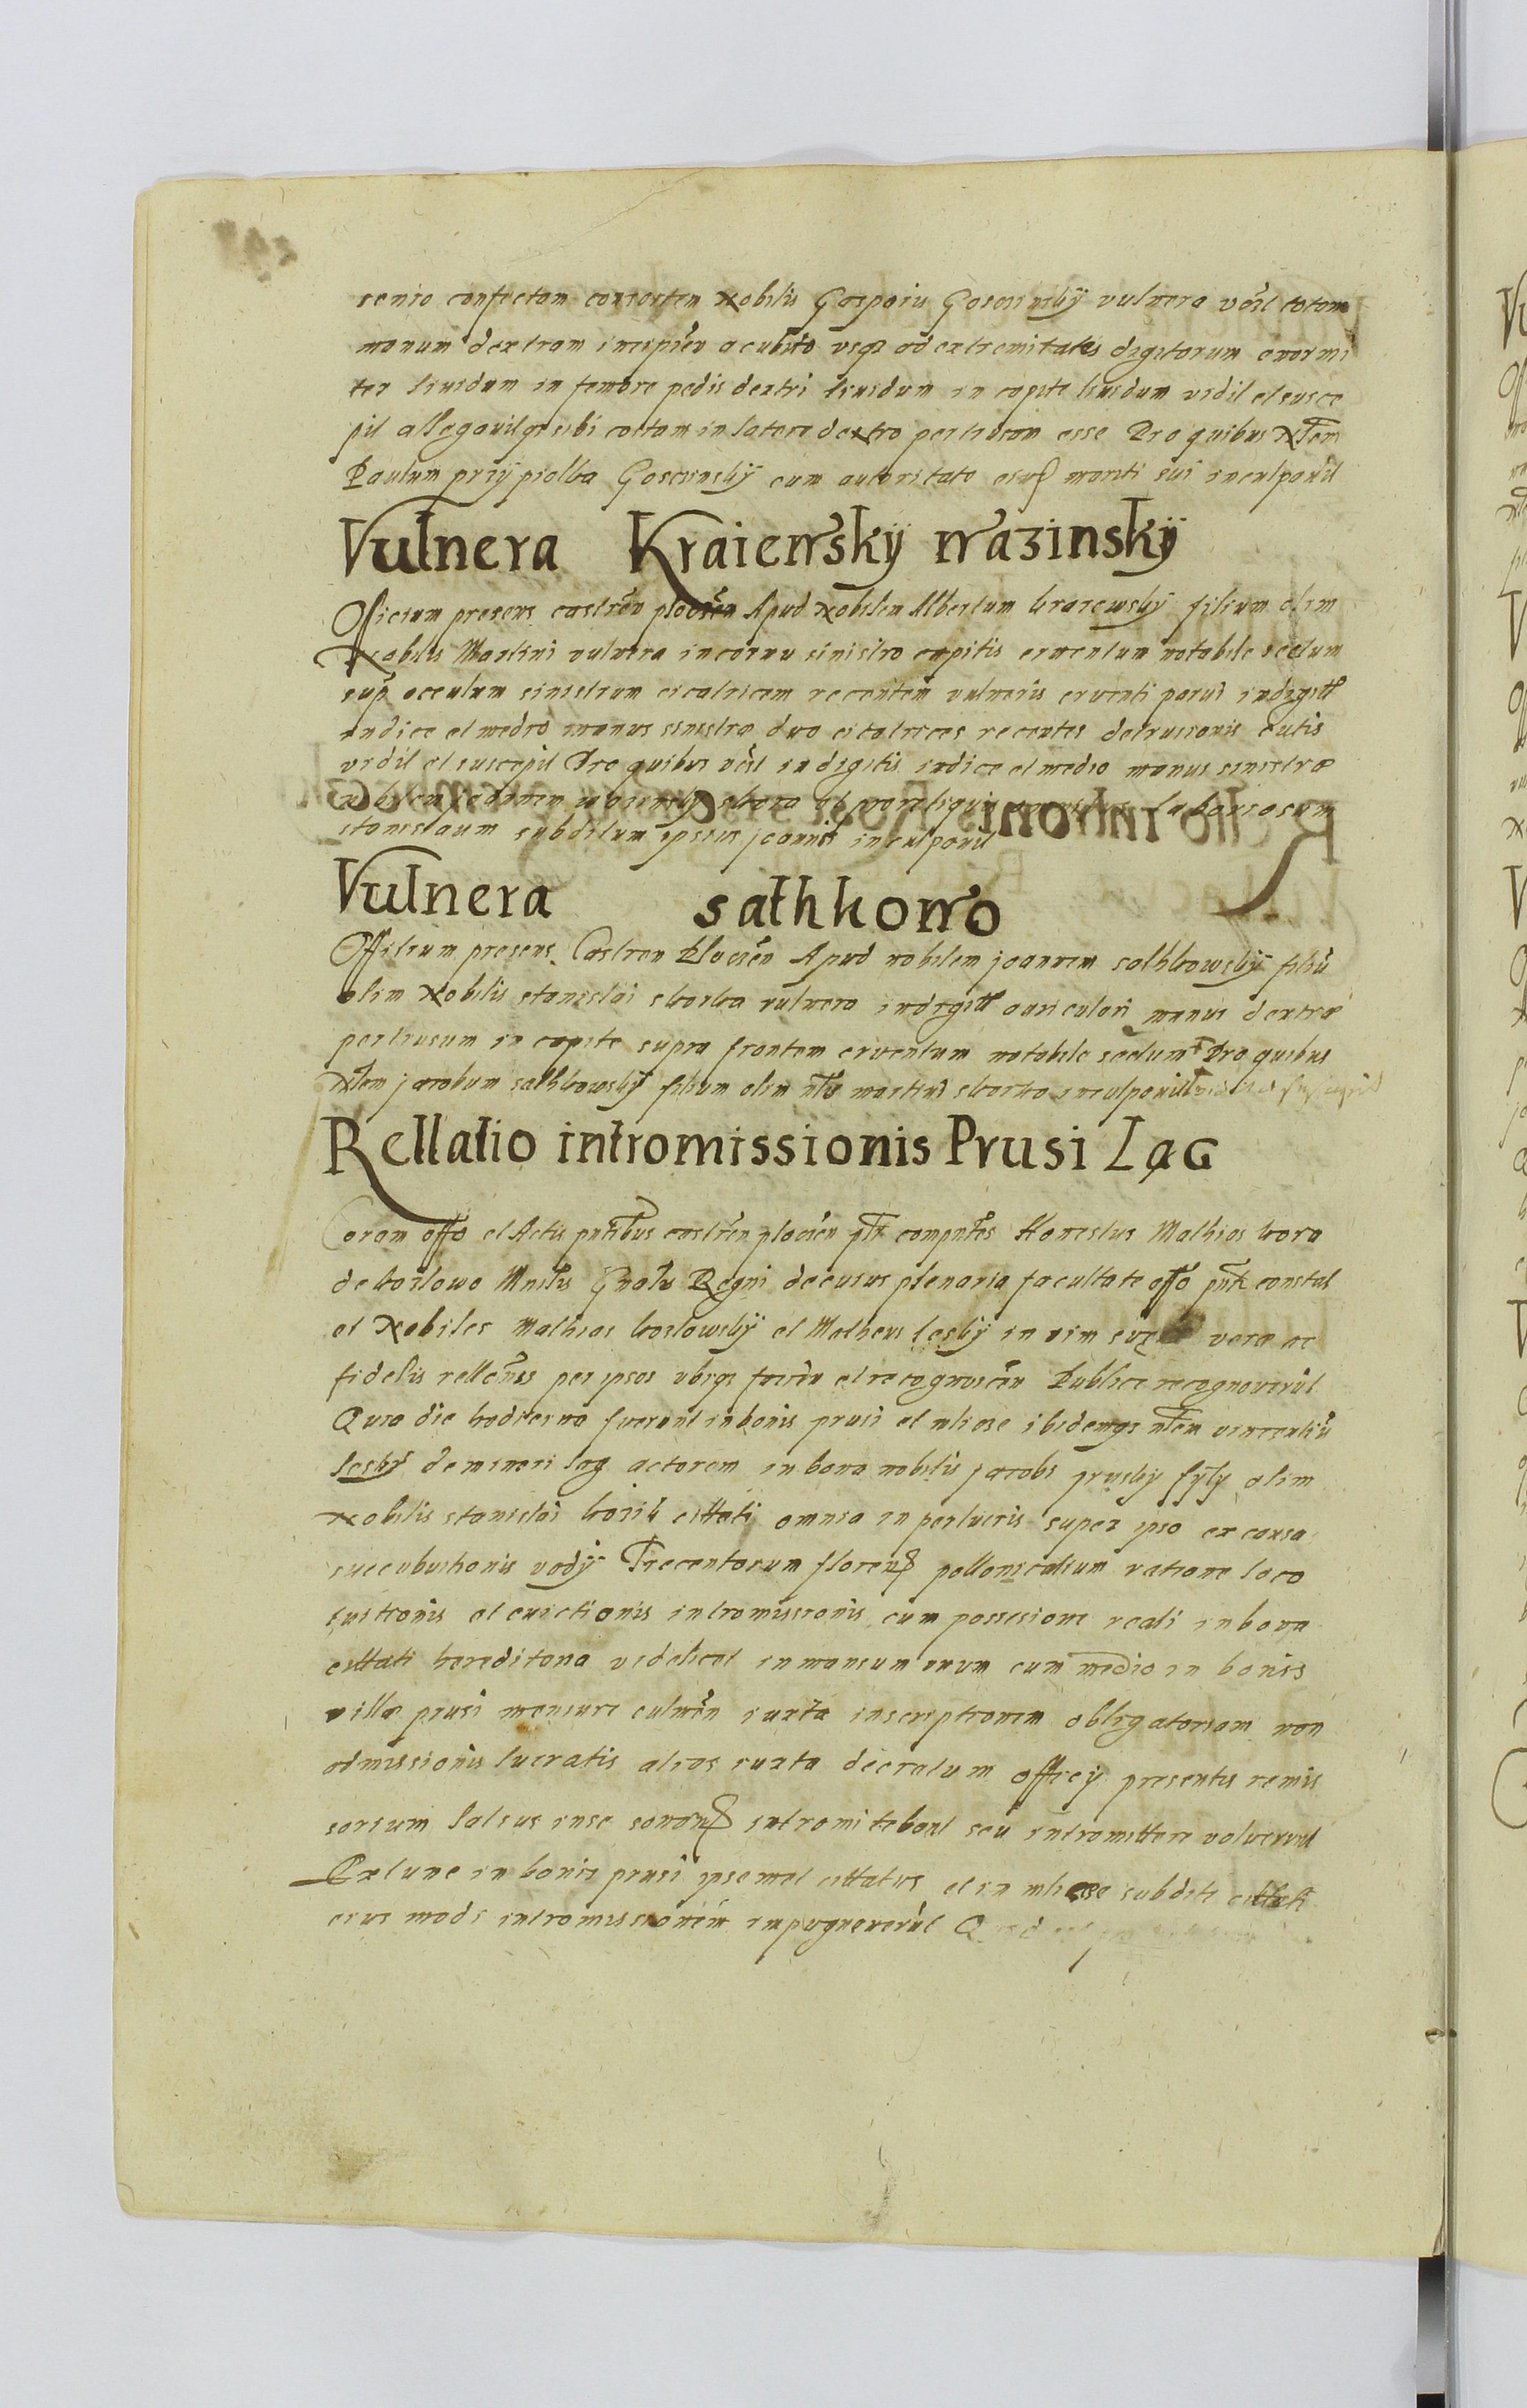 senio confectam consortem Nobilis Gasparis Gosciinskÿ vulnera vcꝫ totam
manum dextram incipien a cubito vsqꝫ ad extremitates digitorum enormi
ter liuidum in femore pedis dextri liuidum in capite liuidum vidit et susce
pit allegauitqꝫ sibi costam in latere dextro pertusam esse Pro quibus Nlem
Paulum przÿpiolka Gosciinskÿ cum autoritate eius mariti sui inculpauit
Vulnera Kraiewskÿ wazinskÿ
Officium presens castren plocen Apud Nobilem Albertum kraiewskÿ filium olim
Nobilis Martini vulnera in cornu sinistro capitis cruentum notabile sectum
supra occulum sinistrum cicatricem recentem vulneris cruenti parui in digitt
indice et medio manus sinistræ duo cicatrices recentes detrusionis cutis
vidit et suscepit Pro quibus vcꝫ in digitis indice et medio manus sinistræ
laboriosum
stanislaum subditum ipsius joannis inculpauit
Vulnera sathkowo
Offitium presens Castren Plocen Apud nobilem joannem sathkowskÿ filiū
olim Nobilis stanislai skorka vulnera in digitt auriculari manus dextræ
pertusum in capite supra frontem cruentum notabile sectum Pro quibus
Nlem jacobum sathkowskÿ filium olim nlis martini skorka inculpauit
Rellatio intromissionis Prusi Lag
Coram offo et Actis pntibus castren plocen plr compntes Honestus Mathias kora
de kozlowo Mnilis Gnalis Regni decusus plenaria facultate offo pnti constat
et Nobiles Mathias kozlowskÿ et Matheus leskÿ in vim suæ veræ ac
fidelis rellonis per ipsos vbiqꝫ facien et recognoscen Publice recognouerūt
Quia die hodierna fuerunt in bonis prusi et mliose ibidemqꝫ nlem vincentiū
leskÿ de minori lag actorem in bona nobilis jacobi pruskÿ fÿlÿ olim
Nobilis stanislai cittati omnia in perlucris super ipso ex causa
succubitionis vadÿ Trecentorum floren pollonicalium ratione loco
tuitionis et euictionis intromissionis cum possesione reali in bona
cittati hereditaria videlicet in mansum vnum cum medio in bonis
villæ prusi mensure culmen iuxta inscriptionem obligatoriam non
admissionis lucratis alias iuxta decratum officÿ presentis remis
sorium latius in se sonan intromitebant seu intromittere voluerunt
Extunc in bonis prusi ipsemet cittatus et in mliose subditi cittati
eius modi intromissionem impugnauerūt